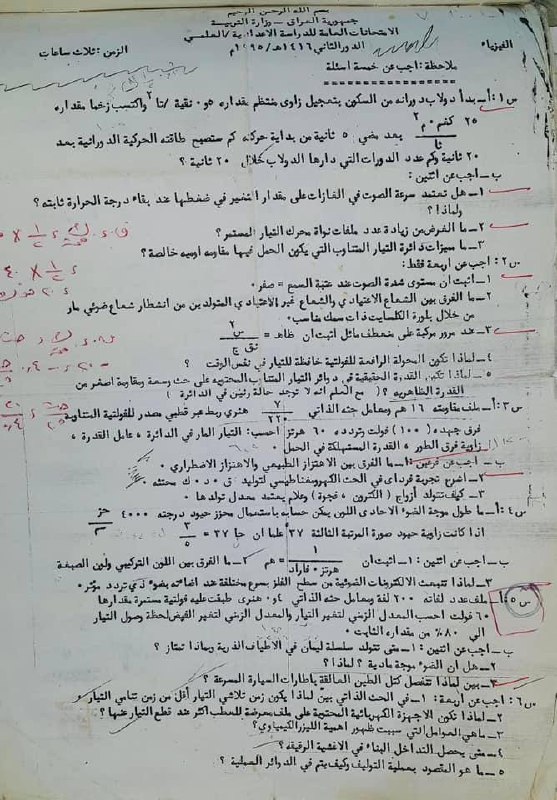 بسم الله الرحمن الرحيم
جمهورية العراق - وزارة التربية
الامتحانات العامة للدراسة الاعدادية / العلمي
الفيزياء
الدور الثاني ١٤١٦هـ / ١٩٩٥م
الزمن: ثلاث ساعات
ملاحظة: اجب عن خمسة اسئلة
س١: أ- بدأ دولاب دورانه من السكون بتعجيل زاوي منتظم مقداره ٠٫٥ نقية / ثا٢ واكتسب زخما مقداره
٢٥ كغم٠م٢/ثا بعد مضي ٥ ثانية من بداية حركته كم ستصبح طاقته الحركية الدورانية بعد
٢٠ ثانية وكم عدد الدورات التي دارها الدولاب خلال ٢٠ ثانية ؟
ب- اجب عن اثنين:
١- هل تعتمد سرعة الصوت في الغازات على مقدار التغير في ضغطها عند بقاء درجة الحرارة ثابته ؟
ولماذا ؟
٢- ما الغرض من زيادة عدد ملفات نواة محرك التيار المستمر؟
٣- ما مميزات دائرة التيار المتناوب التي يكون الحمل فيها مقاومه اوميه خالصة ؟
س٢: اجب عن اربعة فقط:
١- اثبت ان مستوى شدة الصوت عند عتبة السمع = صفر ٠
٢- ما الفرق بين الشعاع الاعتيادي والشعاع غير الاعتيادي المتولدين من انشطار شعاع ضوئي مار
من خلال بلورة الكلسايت ذات سمك مناسب ٠
٣- عند مرور مركبة على منعطف مائل اثبت ان ظاهـ = س٢/نق ج
٤- لماذا تكون المحولة الرافعة للفولتية خافظة للتيار في نفس الوقت ؟
٥- لماذا تكون القدرة الحقيقية في دوائر التيار المتناوب المحتويه على حث وسعة ومقاومة اصغر من
القدرة الظاهريه ؟ ( مع العلم انه لا توجد حالة رنين في الدائرة )
س٣: أ- ملف مقاومته ١٦ هم ومعامل حثه الذاتي هنري ربط مع قطبي مصدر للفولتية المتناوبة
فرق جهده (١٠٠) فولت وتردده ٦٠ هرتز احسب: التيار المار في الدائرة ، عامل القدرة ،
زاوية فرق الطور ، القدرة المستهلكة في الحمل ٠
ب- اجب عن فرعين: ١- ما الفرق بين الاهتزاز الطبيعي والاهتزاز الاضطراري ٠
٢- اشرح تجربة فرداي في الحث الكهرومغناطيسي لتوليد ق ٠ د ٠ ك محتثه ٠
٣- كيف تتولد أزواج ( الكترون ، فجوة ) وعلام يعتمد معدل تولدها ٠
س٤: أ- ما طول موجة الضوء الاحادي اللون يمكن حسابه باستعمال محزز حيود درجته ٤٠٠٠ حز/سم
اذا كانت زاوية حيود صورة المرتبة الثالثة ٣٧ علما ان جا ٣٧ = ٣/٥
ب- اجب عن اثنين: ١- اثبت ان ١/هرتز٠فاراد = هم ٢- ما الفرق بين اللون التركيبي ولون الصبغة
٣- لماذا تنبعث الالكترونات الضوئية من سطح الفلز بسرع مختلفة عند اضاءته بضوء ذي تردد مؤثر ٠
س٥: أ- ملف عدد لفاته ٢٠٠ لفة ومعامل حثه الذاتي ٠٫٤ هنري طبقت عليه فولتية مستمرة مقدارها
٦٠ فولت احسب المعدل الزمني لتغير التيار والمعدل الزمني لتغير الفيض لحظة وصول التيار
الى ٨٠٪ من مقداره الثابت ٠
ب- اجب عن اثنين: ١- متى تتولد سلسلة ليمان في الاطياف الذرية وبماذا تمتاز ؟
٢- هل ان الضوء موجة مادية ؟ لماذا ؟
٣- بين لماذا تنفصل كتل الطين العالقة باطارات السيارة المسرعة ؟
س٦: اجب عن أربعة: ١- في الحث الذاتي بين لماذا يكون زمن تلاشي التيار أقل من زمن تنامي التيار ٠
٢- لماذا تكون الاجهزة الكهربائية المحتوية على ملف معرضة للعطب اكثر عند قطع التيار عنها ؟
٣- ماهي العوامل التي سببت ظهور اهمية الليزر الكيمياوي ؟
٤- متى يحصل التداخل البناء في الاغشية الرقيقه ؟
٥- ما هو المقصود بعملية التوليف وكيف يتم في الدوائر العملية ؟